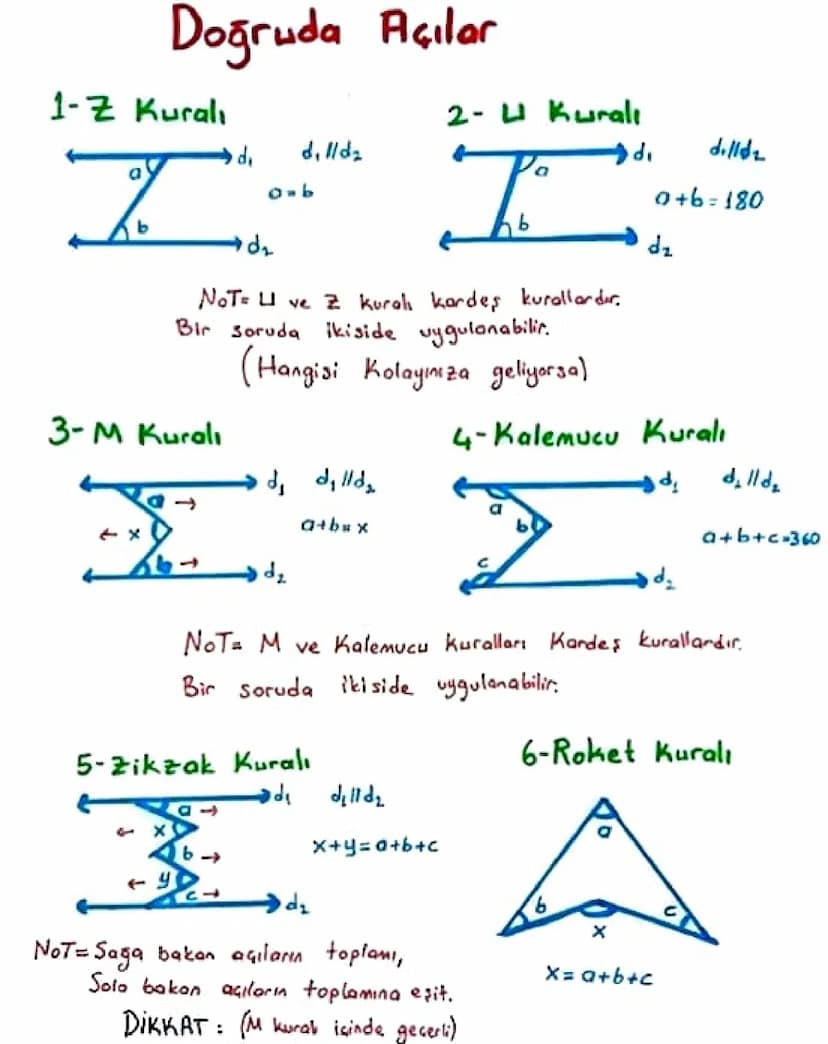 Doğruda Açılar
1-Z Kuralı
d₁
d₁//d₂
a
a=b
b
d₂
2- U Kuralı
d₁
d₁//d₂
a
a+b=180
b
d₂
NOT= U ve Z kuralı kardeş kurallardır.
Bir soruda ikiside uygulanabilir.
(Hangisi Kolayınıza geliyorsa)
3-M Kuralı
d₁
d₁//d₂
a →
← x
a+b=x
b →
d₂
4-Kalemucu Kuralı
d₁
d₁//d₂
a
b
a+b+c=360
c
d₂
NOT= M ve Kalemucu kuralları Kardeş kurallardır.
Bir soruda ikiside uygulanabilir.
5-Zikzak Kuralı
d₁
d₁//d₂
a →
← x
x+y=a+b+c
b →
← y
c →
d₂
NOT= Sağa bakan açıların toplamı,
Sola bakan açıların toplamına eşit.
DİKKAT : (M kuralı içinde geçerli)
6-Roket Kuralı
a
b
c
x
x=a+b+c